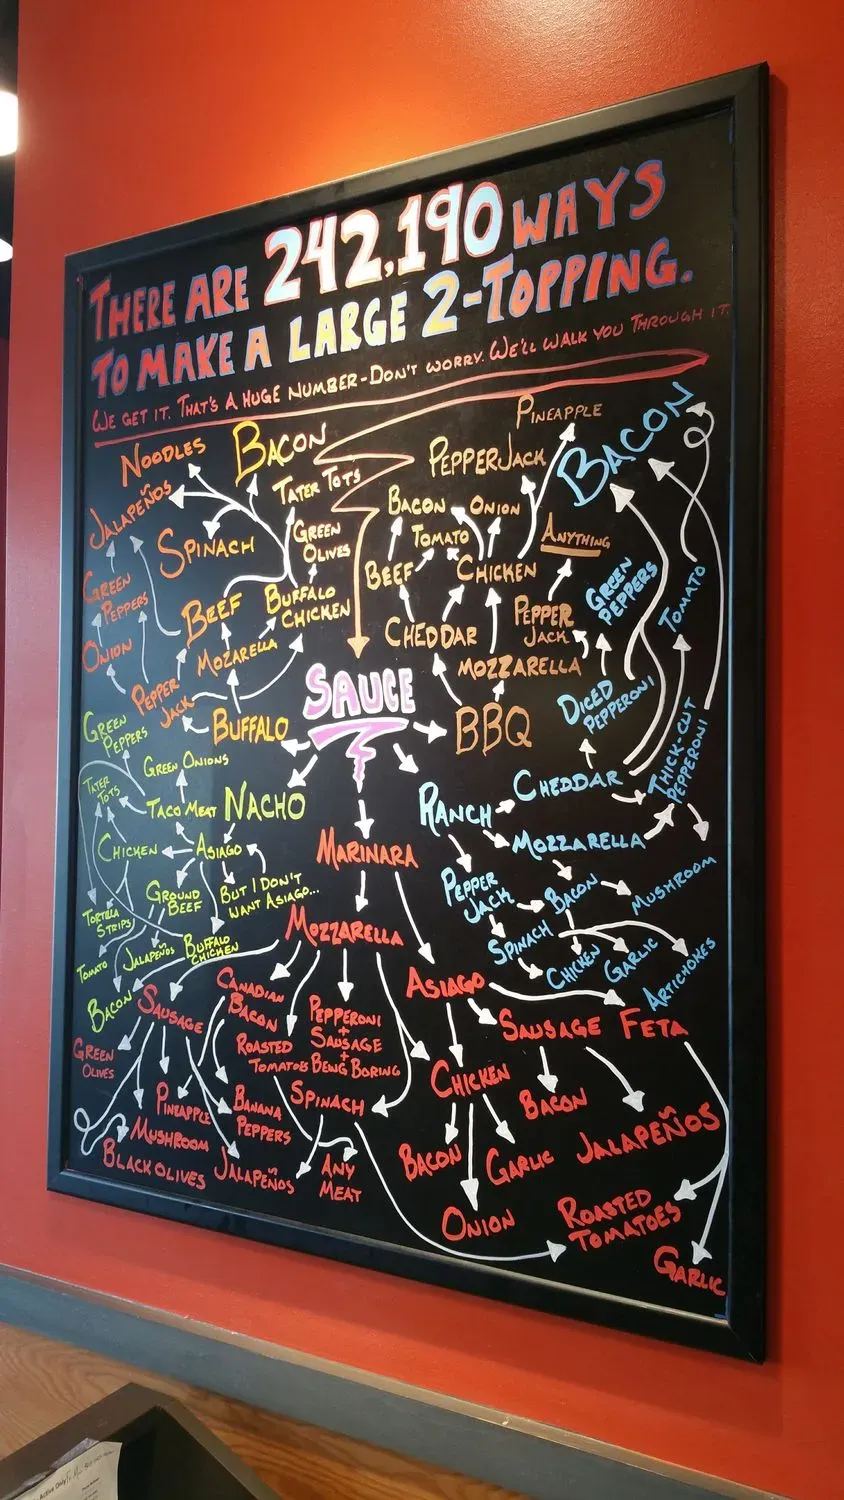 THERE ARE 242,190 WAYS
TO MAKE A LARGE 2-TOPPING.
WE GET IT. THAT'S A HUGE NUMBER-DON'T WORRY. WE'LL WALK YOU THROUGH IT.
NOODLES
BACON
JALAPEÑOS
TATER TOTS
SPINACH
GREEN
OLIVES
GREEN
PEPPERS
BEEF
BUFFALO
CHICKEN
ONION
MOZARELLA
PEPPER
JACK
BUFFALO
PINEAPPLE
PEPPERJACK
BACON
BACON
ONION
TOMATO
ANYTHING
BEEF
CHICKEN
CHEDDAR
PEPPER
JACK
MOZZARELLA
SAUCE
BBQ
GREEN
PEPPERS
TOMATO
DICED
PEPPERONI
THICK-CUT
PEPPERONI
CHEDDAR
RANCH
MOZZARELLA
MUSHROOM
PEPPER
JACK
BACON
SPINACH
CHICKEN
GARLIC
ARTICHOKES
GREEN
PEPPERS
GREEN ONIONS
TATER
TOTS
TACO MEAT
NACHO
CHICKEN
ASIAGO
GROUND
BEEF
BUT I DON'T
WANT ASIAGO...
TORTILLA
STRIPS
TOMATO
JALAPEÑOS
BUFFALO
CHICKEN
BACON
MARINARA
MOZZARELLA
ASIAGO
SAUSAGE
CANADIAN
BACON
ROASTED
TOMATOES
PEPPERONI
+
SAUSAGE
+
BEING BORING
SAUSAGE
FETA
GREEN
OLIVES
PINEAPPLE
BANANA
PEPPERS
SPINACH
CHICKEN
BACON
MUSHROOM
BLACK OLIVES
JALAPEÑOS
ANY
MEAT
BACON
GARLIC
JALAPEÑOS
ONION
ROASTED
TOMATOES
GARLIC